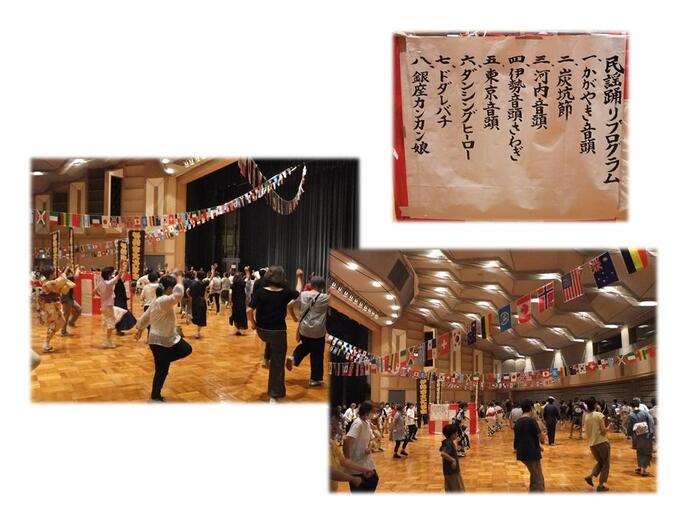 民謡踊りプログラム
一、かがやき音頭
二、炭坑節
三、河内音頭
四、伊勢音頭さわぎ
五、東京音頭
六、ダンシングヒーロー
七、ドダレバチ
八、銀座カンカン娘